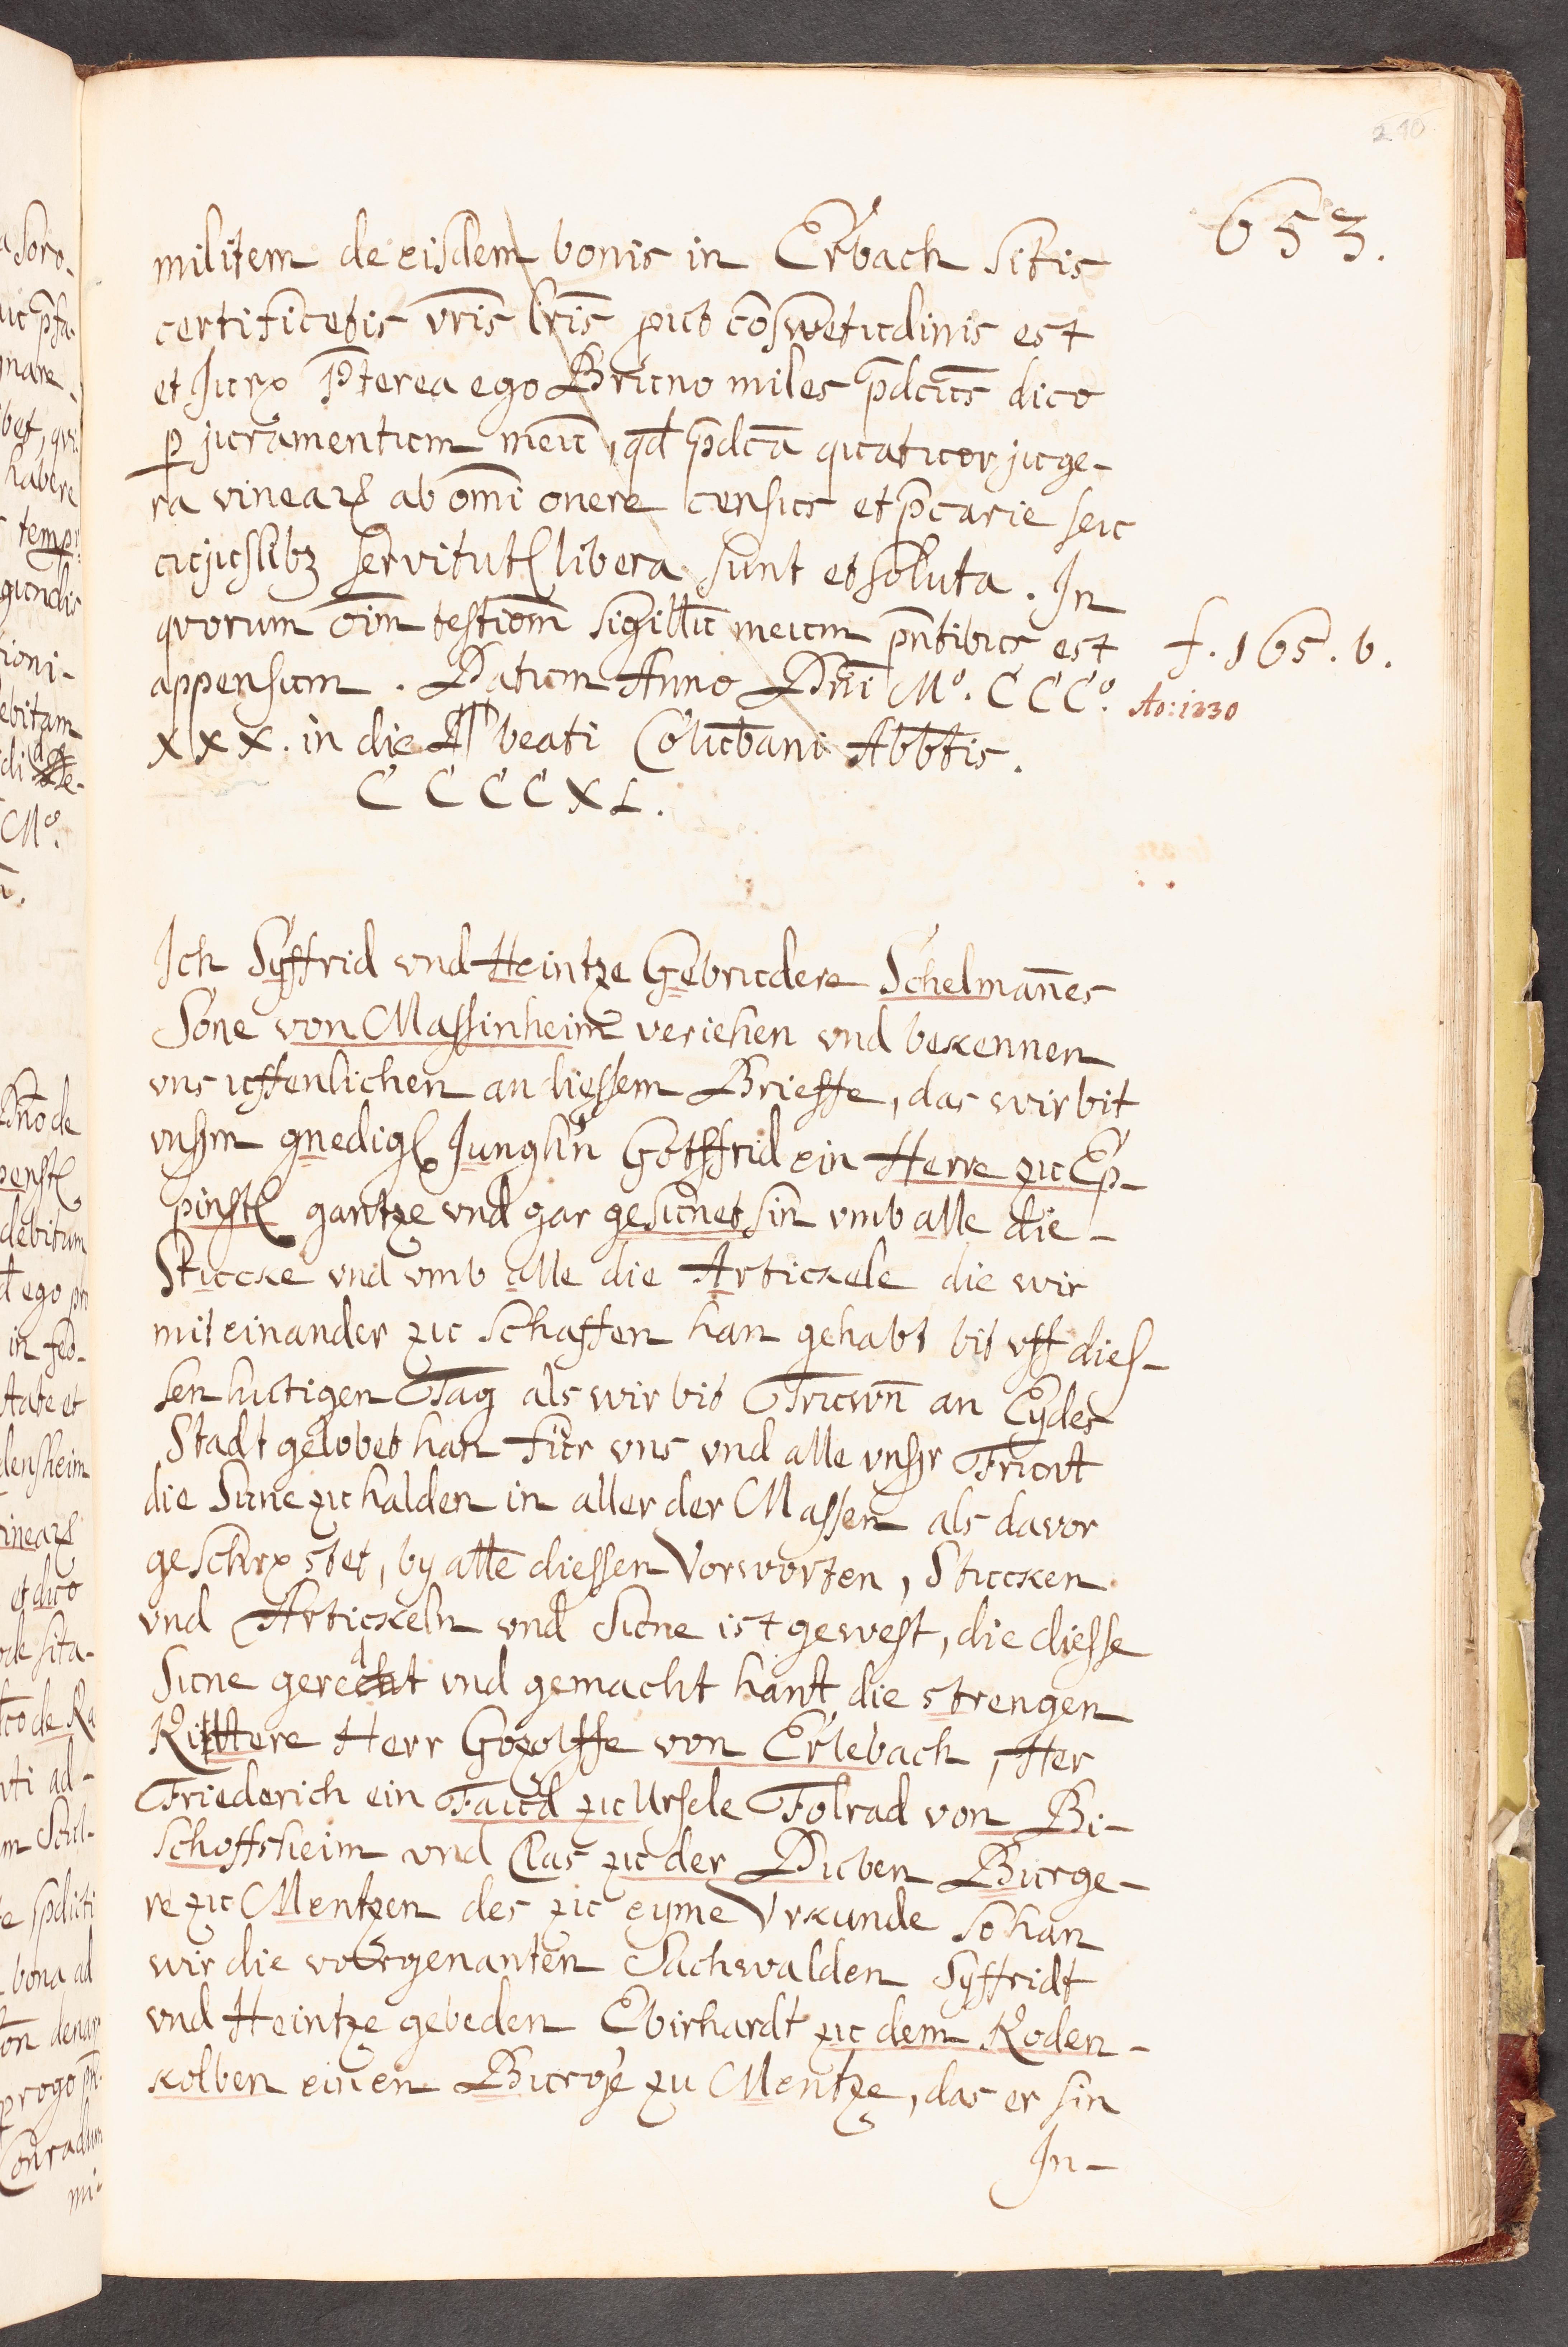 240
653.
militem de eisdem bonis in Erbach sitis
certificetis vr̄is lr̄is put cōswetudinis est
et Jurꝫ Pr̄terea ego Bruno miles p̄dcūs dico
ꝑ juramentum meū, qd̄ p̄dcā quatuor juge-
ra vinearꝫ ab om̄i onere census et p̄carie seu
cujuslibꝫ servitutꝭ libera sunt et soluta. In
quorum oīm testiom̄ sigillū meum pn̄tibus est
f. 165. b.
appensum. Datum Anno Dn̄i Mº. CCCº.
Ao: 1330
XXX. in die beati Colūbani Abbtis.
CCCCXL.
Ich Syffrid vnd Heintze Gebrudere Schelman̄es
Sone von Massinheim veriehen vnd bekennen
vns uffenlichen an diessem Brieffe, das wir bit
vnsꝫm gnedigꝭ Junghr̄n Gotffrid ein Herre zu Ep-
pinstꝭ gantze vnd gar gesunet sin vmb alle die
Stuccke vnd vmb alle die Artickele die wir
miteinander zu schaffen han gehabt bit vff dies-
sen hutigen Tag als wir bit Truwn̄ an Eydes
Stadt gelobet han für vns vnd alle vnsꝫr Frunt
die Sune zu halden in aller der Massen als davor
geschrꝫ stet, by alle diessen Vorworten, Stuccken
vnd Artickeln vnd Sune ist gewest, die diesse
Sune geredt vnd gemacht hant die strengen
Rittere Herr Gozolffe von Erlebach, Her
Friederich ein Faud zu Ursele Folrad von Bi-
schoffsheim vnd Clas zu der Duben Burge-
re zu Mentzen des zu eyme Vrkunde so han
wir die vorgenanten Sachwalden Syffridt
vnd Heintze gebeden Ebirhardt zu dem Roden-
kolben einen Burge zu Mentze, das er sin
In-